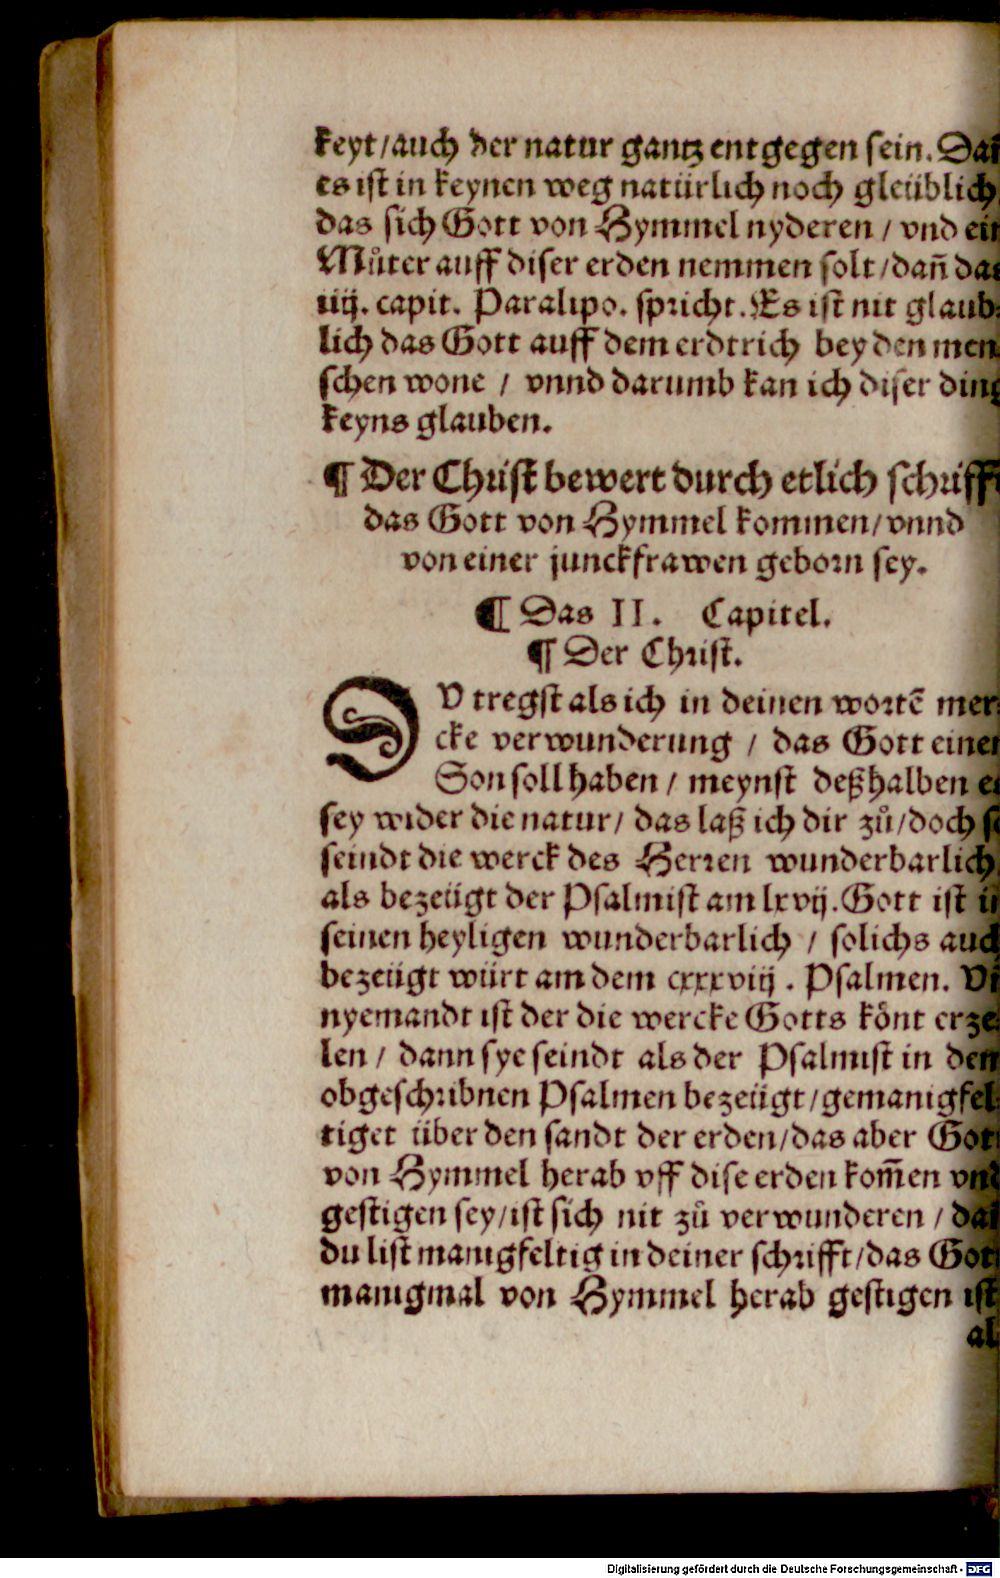 keyt/auch der natur gantz entgegen sein. Dañ
es ist in keynen weg natürlich noch gleüblich
das sich Gott von Hymmel nyderen / vnd ein
Můter auff diser erden nemmen solt/dañ das
iiij. capit. Paralipo. spricht. Es ist nit glaub-
lich das Gott auff dem erdtrich bey den men
schen wone / vnnd darumb kan ich diser ding
keyns glauben.
¶ Der Christ bewert durch etlich schrifft
das Gott von Hymmel kommen/vnnd
von einer junckfrawen geborn sey.
¶ Das II. Capitel.
¶ Der Christ.
DV tregst als ich in deinen wortē mer-
cke verwunderung / das Gott einen
Son soll haben / meynst deßhalben es
sey wider die natur/ das laß ich dir zů/doch so
seindt die werck des Herren wunderbarlich
als bezeügt der Psalmist am lxvij. Gott ist in
seinen heyligen wunderbarlich / solichs auch
bezeügt würt am dem cxxxviij. Psalmen. Vñ
nyemandt ist der die wercke Gotts kônt erze-
len / dann sye seindt als der Psalmist in dem
obgeschribnen Psalmen bezeügt/gemanigfel-
tiget über den sandt der erden/das aber Gott
von Hymmel herab vff dise erden kom̄en vnd
gestigen sey/ist sich nit zů verwunderen / dañ
du list manigfeltig in deiner schrifft/das Gott
manigmal von Hymmel herab gestigen ist
als
Digitalisierung gefördert durch die Deutsche Forschungsgemeinschaft - DFG